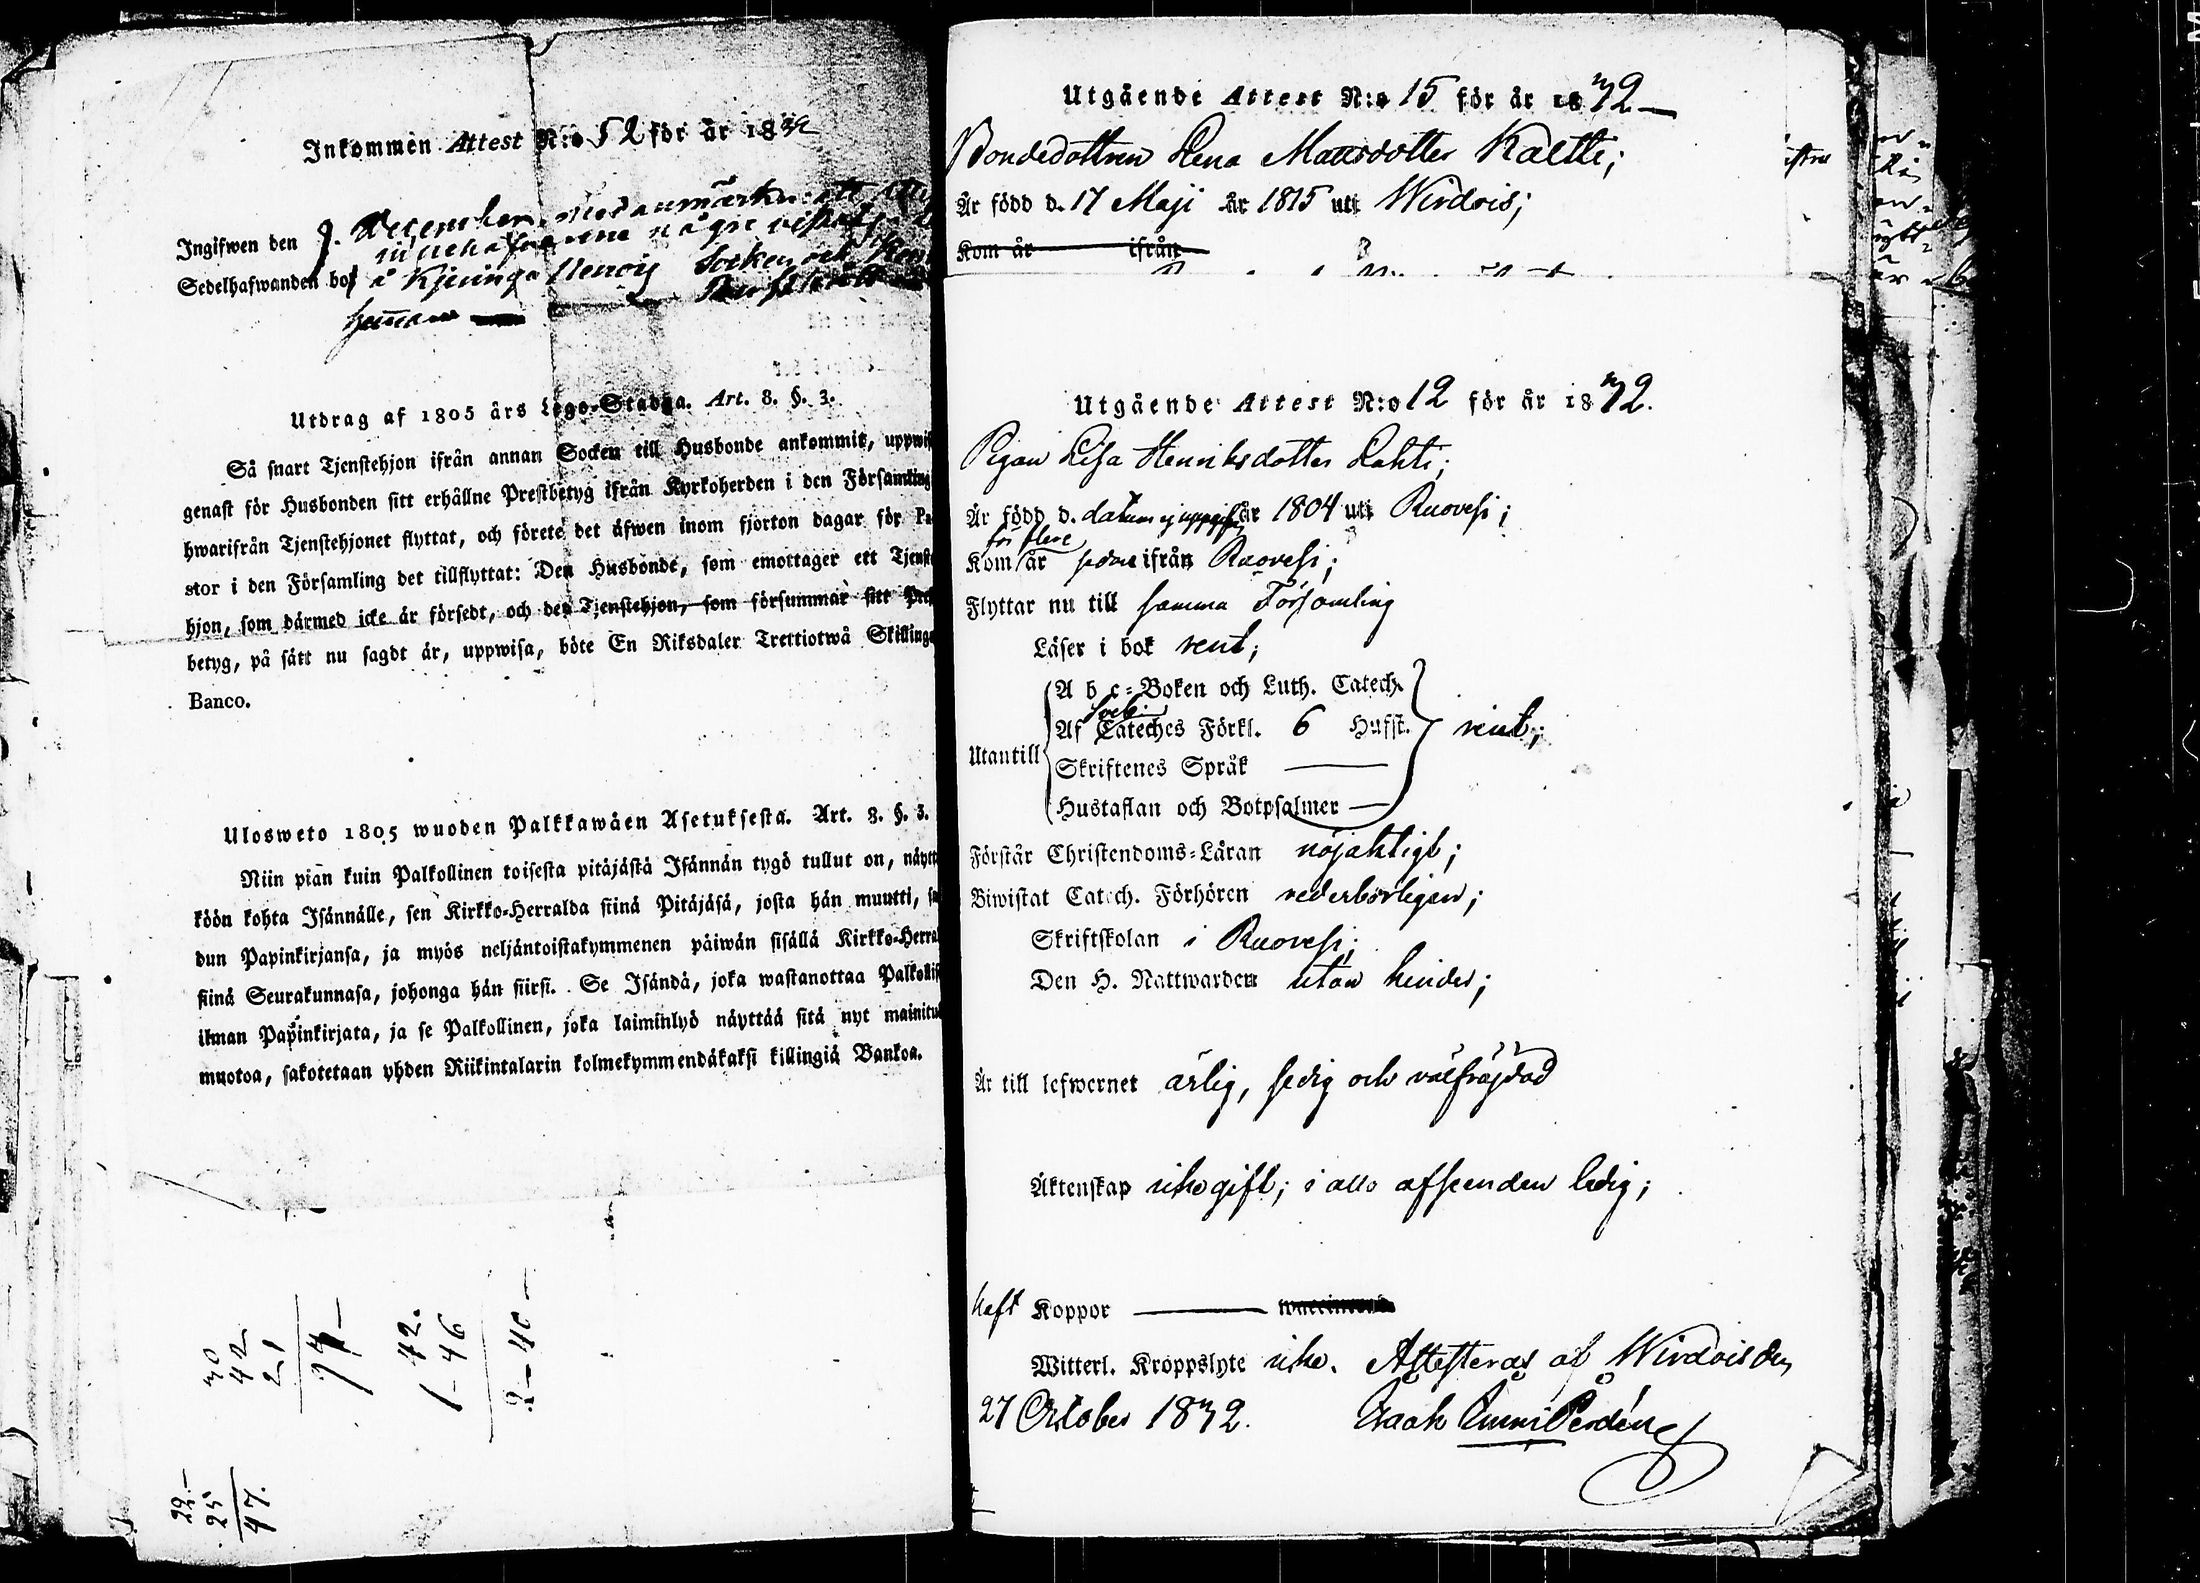 Inkommen Attest N:o 52 för år 1832
Ingifwen den 9. December, med anmärkn: att
innehafvarinne någre
Sedelhafwanden bor å Kjeuruu Socken och
hemman
Utdrag af 1805 års Lego-Stadga. Art. 8. §. 3.
Så snart Tjenstehjon ifrån annan Socken till Husbonde ankommit, uppwis
genast för Husbonden sitt erhållne Prestbetyg ifrån Kyrkoherden i den Församling
hwarifrån Tjenstehjonet flyttat, och förete det äfwen inom fjorton dagar för Pa
stor i den Församling det tillflyttat: Den Husbonde, som emottager ett Tjenst
hjon, som därmed icke är försedt, och det Tjenstehjon, som försummar sitt Prest
betyg, på sätt nu sagdt är, uppwisa, böte En Riksdaler Trettiotwå Skillingar
Banco.
Ulosweto 1805 wuoden Palkkawäen Asetuksesta. Art. 8. §. 3.
Niin pian kuin Palkollinen toisesta pitäjästä Isännän tygö tullut on, näytt
köön kohta Isännälle, sen Kirkko-Herralda siinä Pitäjäsä, josta hän muutti, sa
dun Papinkirjansa, ja myös neljäntoistakymmenen päiwän sisällä Kirkko-Herra
siinä Seurakunnasa, johonga hän siirsi. Se Isändä, joka wastanottaa Palkollis
ilman Papinkirjata, ja se Palkollinen, joka laiminlyö näyttää sitä nyt mainitu
muotoa, sakotetaan yhden Riikintalarin kolmekymmendäkaksi killingiä Bankoa.
30
42
21
74 –
42.
1 – 46
2 – 40 –
22. –
25
47.
Utgående Attest N:o 15 för år 1832 –
Bondedottren Lena Mattsdotter Kaltti;
Är född d. 17 Maji år 1815 uti Wirdois;
Kom år ifrån
Utgående Attest N:o 12 för år 1832.
Pigan Lisa Henriksdotter Lahti;
Är född d. datum ej uppgifvit år 1804 uti Ruovesi;
för flere
Kom år sedan ifrån Ruovesi;
Flyttar nu till samma Församling
Läser i bok rent;
A b c-Boken och Luth. Catech.
Sveb:
Af Cateches Förkl. 6 Hufst. rent;
Utantill
Skriftenes Språk —
Hustaflan och Botpsalmer —
Förstår Christendoms-Läran nöjaktigt;
Biwistat Catech. Förhören vederbörligen;
Skriftskolan i Ruovesi;
Den H. Nattwarden utan hinder;
Är till lefwernet ärlig, sedig och välfräjdad
Äktenskap icke gift; i allo afseenden ledig;
haft Koppor —
Witterl. Kroppslyte icke. Attesteras af Wirdois den
27 October 1832.